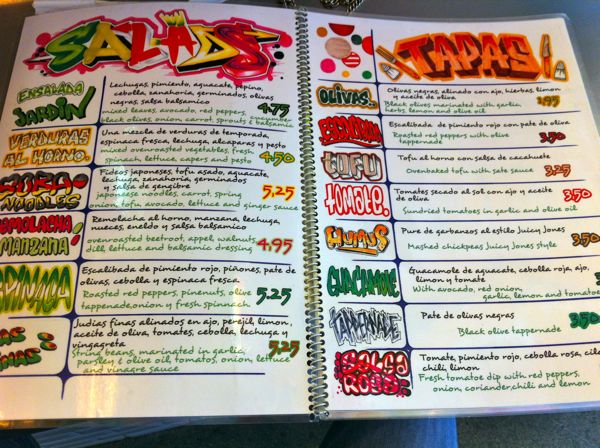 SALADS
ENSALADA
JARDIN
Lechugas, pimiento, aguacate, pepino,
cebolla, zanahoria, germinados, olivas
negras, salsa balsamico
mixed leaves, avocado, red pepper, cucumber
black olives, onion, carrot, sprouts & balsamic
4.75
VERDURAS
AL HORNO.
Una mezcla de verduras de temporada,
espinaca fresca, lechuga, alcaparas y pesto
mixed ovenroasted vegetables, fresh
spinach, lettuce, capers and pesto
4.50
NOODLES
Fideos japoneses, tofu asado, aguacate,
lechuga, zanahoria, germinados
y salsa de gengibre
japanese noodles, carrot, spring
onion, tofu, avocado, lettuce and ginger sauce
5.25
REMOLACHA
MANZANA!
Remolacha al horno, manzana, lechuga,
nueces, eneldo y salsa balsamico
ovenroasted beetroot, appel, walnuts,
dill, lettuce and balsamic dressing
4.95
ESPINACA
Escalibada de pimiento rojo, piñones, pate de
olivas, cebolla y espinaca fresca
Roasted red peppers, pinenuts, olive
tappenade, onion y fresh spinnach
5.25
Judias finas alinados en ajo, perejil, limon,
aceite de oliva, tomates, cebolla, lechuga y
vinagreta
String beans, marinated in garlic,
parsley & olive oil, tomatos, onion, lettuce
and vinagre sauce
5.25
TAPAS
OLIVAS
Olivas negras, alinado con ajo, hierbas, limon
y aceite de oliva
Black olives marinated with garlic,
herbs, lemon and olive oil
2.95
Escalibada de pimiento rojo con pate de oliva
Roasted red peppers with olive
tappernade
3.50
TOFU
Tofu al horno con salsa de cacahuete
Ovenbaked tofu with sate sauce
3.25
TOMATE.
Tomates secado al sol con ajo y aceite
de oliva
Sundried tomatoes in garlic and olive oil
3.50
HUMUS
Pure de garbanzos al estilo Juicy Jones
Mashed chickpeas Juicy Jones style
3.50
GUACAMOLE
Guacamole de aguacate, cebolla roja, ajo,
limon y tomate
With avocado, red onion,
garlic, lemon and tomatoe
TAPPERNADE
Pate de olivas negras
Black olive tappernade
3.50
SALSA
ROJA
Tomate, pimiento rojo, cebolla rosa,
chili, limon
Fresh tomatoe dip with red peppers,
onion, coriander, chili and lemon